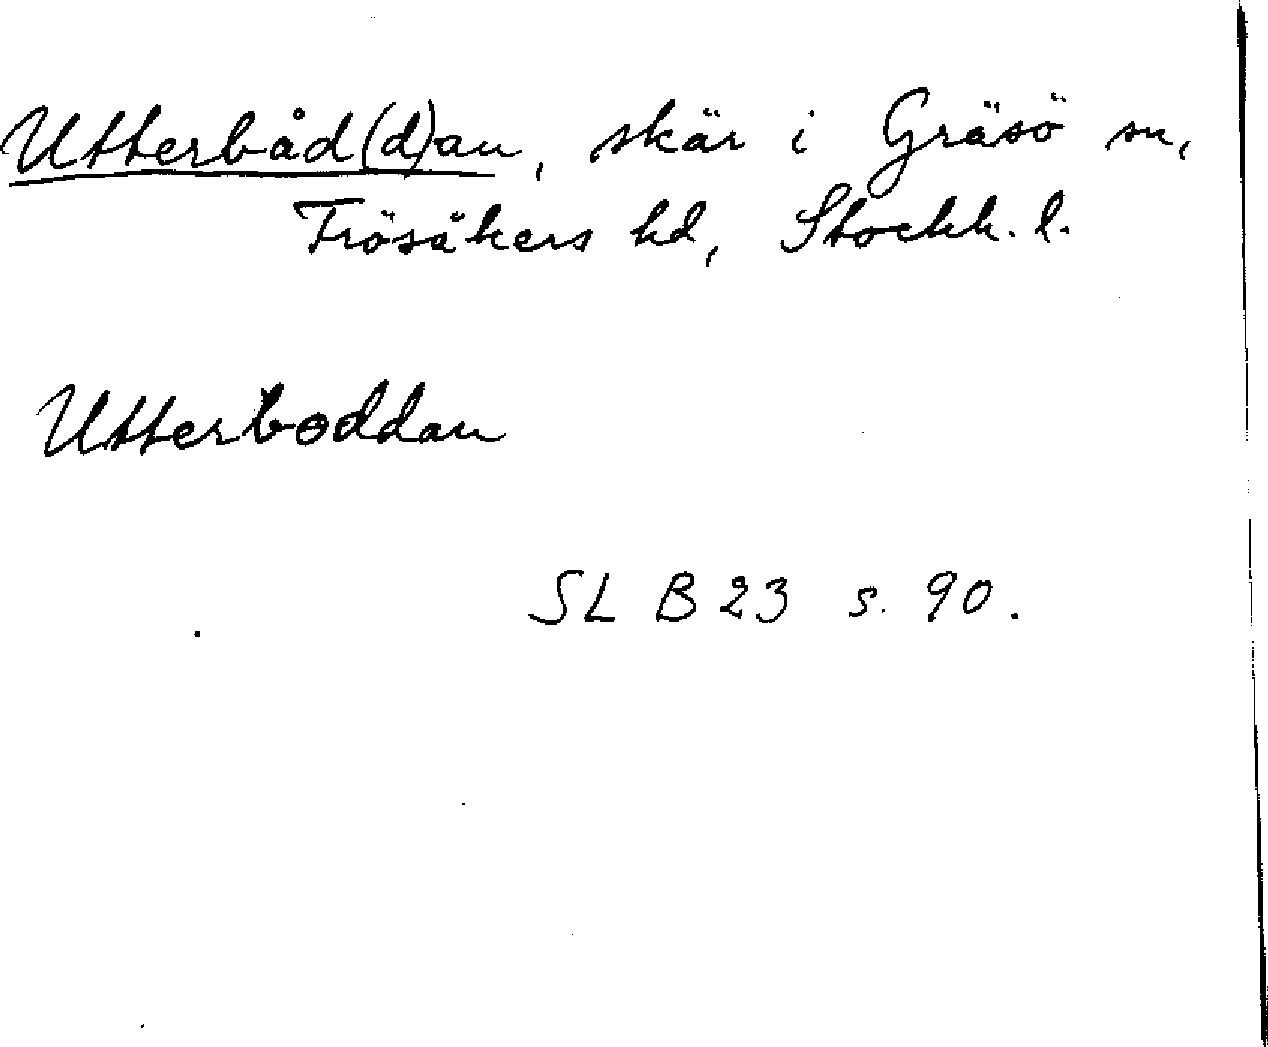 Utterbåd(d)an, skär i Gräsö sn,
Frösåkers hd, Stockh. l.
Utterboddan
SL B 23 s. 90.